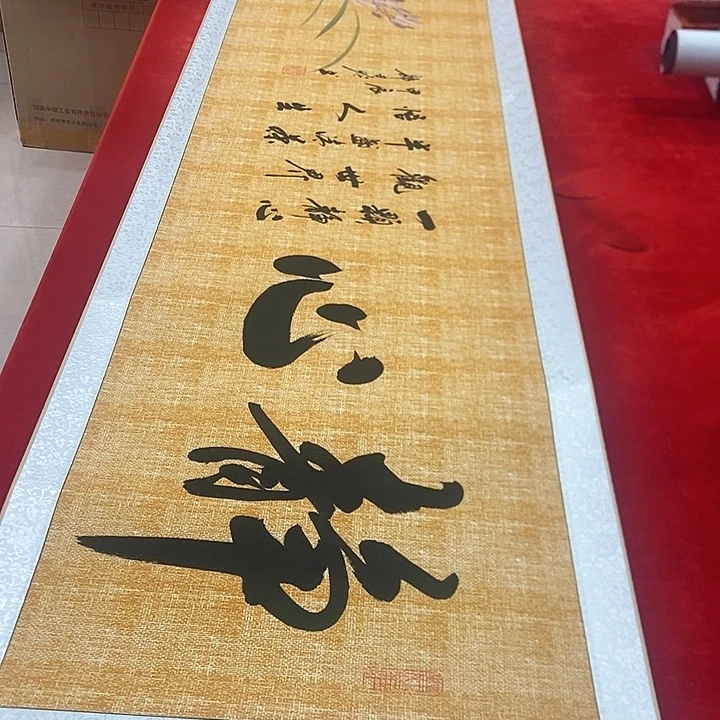 静心
一颗静心
觀世界
半盏清茶
悟人生
河南中烟工业有限责任公司